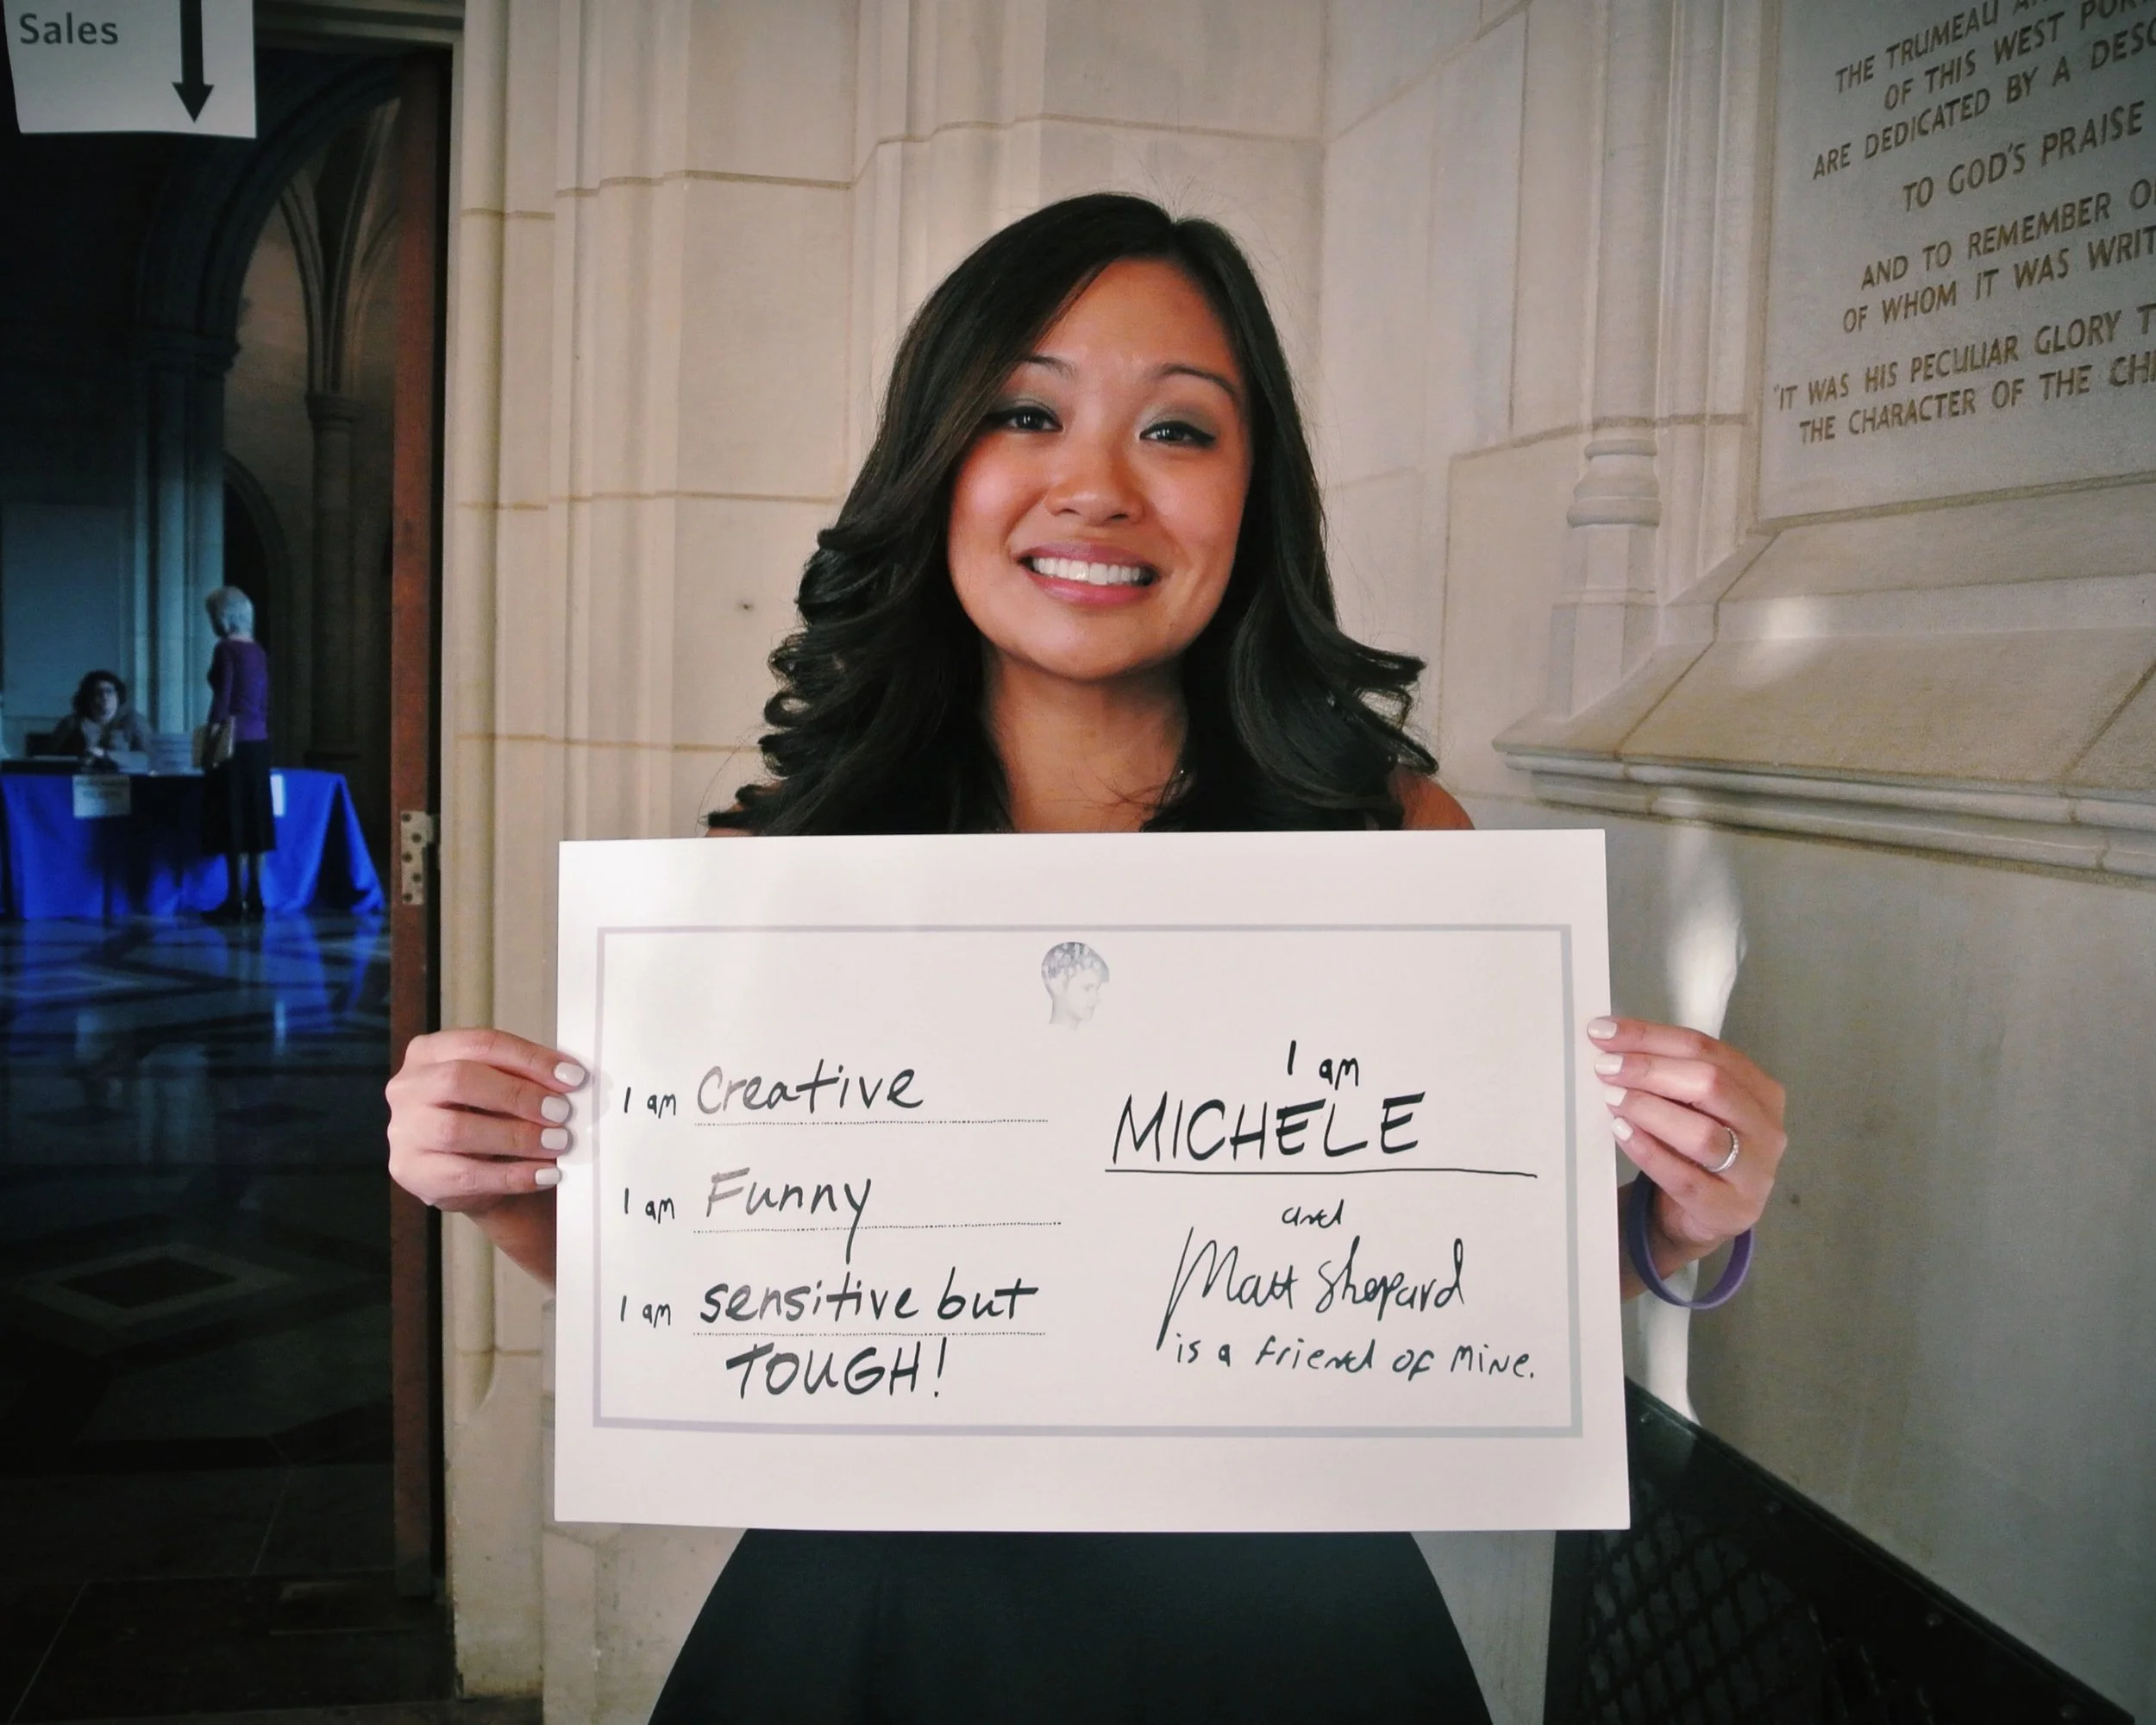 Sales
THE TRUMEAU
OF THIS WEST
ARE DEDICATED BY A
TO GOD'S PRAISE
AND TO REMEMBER
OF WHOM IT WAS
"IT WAS HIS PECULIAR GLORY
THE CHARACTER OF THE
I am Creative
I am Funny
I am sensitive but
TOUGH!
I am
MICHELE
and
Matt Shepard
is a friend of mine.